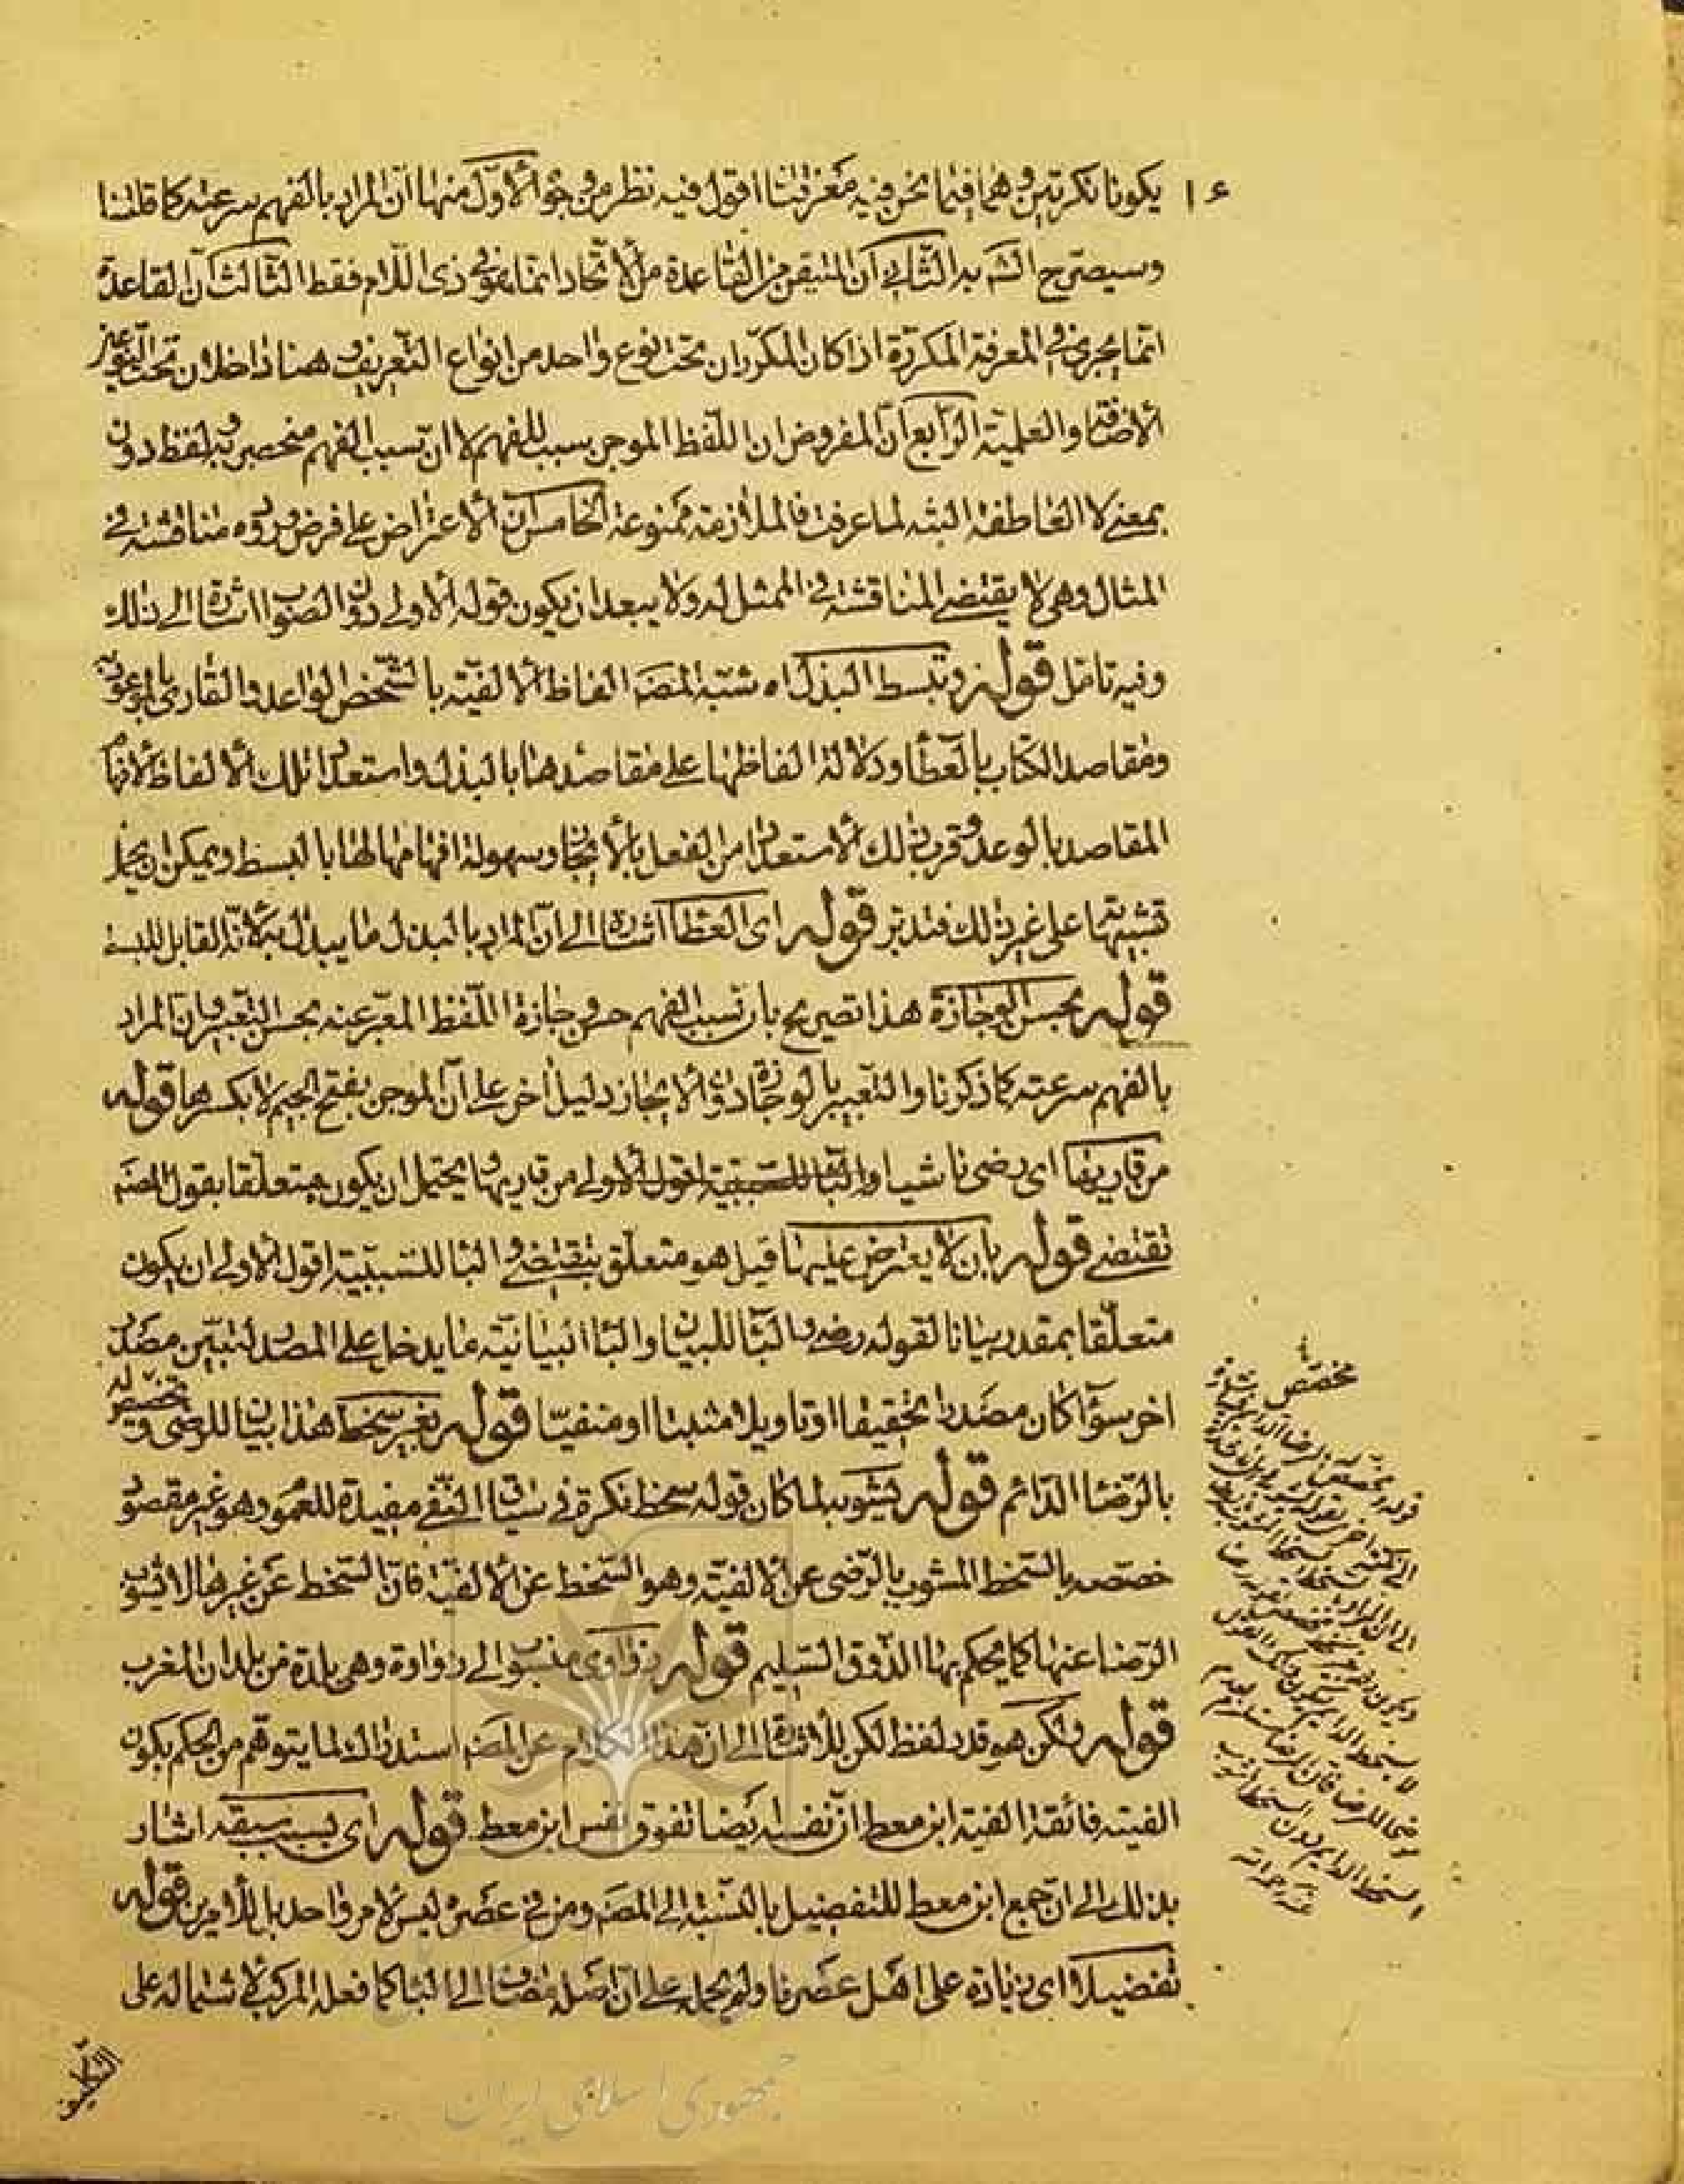 يكونا نكرتين وهما فيما نحن فيه معرفتنا اقول فيه نظر من وجوه الاول منها ان المراد بالفهم سرعته كما قلنا
وسيصرح الشه به الثاني ان المتيقن من القاعدة من الاتحاد انما هو في ذى اللام فقط الثالث ان القاعدة
انما يجرى في المعرفة المكررة اذا كان المكرران تحت نوع واحد من انواع التعريف وهنا داخلان تحت نوعين
الاضافة والعلمية الرابع ان المفروض ان اللفظ الموجز سبب للفهم لا ان سبب الفهم منحصر فيه بلفظ دون
بمعنى لا العاطفة البته لما عرفت فالملازمة ممنوعة الخامس ان الاعتراض على فرض وروده مناقشة في
المثال وهى لا يقتضى المناقشة في الممثل له ولا يبعد ان يكون قوله الاولى دون الصواب اشارة الى ذلك
وفيه تامل قوله وتبسط البذل اه شبه المصه الفاظ الالفية بالشخص الواعد والقارى بالموعود
ومقاصد الكتاب بالعطاء ودلالة الفاظها على مقاصدها بالبذل واستعداد تلك الالفاظ لافهام
المقاصد بالوعد وقرب ذلك الاستعداد من الفعل بالانجاز وسهولة افهامها لها بالبسط ويمكن ان يحمل
تشبيهها على غير ذلك فتدبر قوله اى العطاء اشارة الى ان المراد بالبذل ما يبذل به لانه القابل للبسط
قوله بحسن الوجازة هذا تصريح بان سبب الفهم حسن وجازة اللفظ المعبر عنه بحسن التعبير وان المراد
بالفهم سرعته كما ذكرنا والتعبير بالوجازة دون الايجاز دليل اخر على ان الموجز بفتح الجيم لا بكسرها قوله
من قاريها اى رضى ناشيا والباء للسببية اقول الاولى من قاريها يحتمل ان يكون متعلقا بقول المصه
تقتضى قوله بان لا يعترض عليها قيل هو متعلق بتقتضى والباء للسببية اقول الاولى ان يكون
متعلقا بمقدر بيانا لقوله رضى والباء للبيان والباء البيانية ما يدخل على المصدر لتبيين مصدر
اخر سواء كان مصدرا تحقيقا او تاويلا مثبتا او منفيا قوله بغير سخط هذا بيان للرضى وتخصيص له
بالرضا الدائم قوله يشوبه لما كان قوله سخط نكرة في سياق النفى مفيدة للعموم وهو غير مقصود
خصصه بالسخط المشوب بالرضى عن الالفية وهو السخط عن الالفية فان السخط عن غيرها لا يشوب
الرضا عنها كما يحكم بها الذوق السليم قوله زواوى منسوب الى زواوة وهى بلدة من بلدان المغرب
قوله ولكن هو قدر لفظ لكن للاشارة الى ان هذا الكلام عن المصه استدراك لما يتوهم من الحكم بكون
الفيته فائقة الفية ابن معط ان نفسه ايضا تفوق نفس ابن معط قوله اى بسبب سبقه اشار
بذلك الى ان جمع ابن معط للتفضيل بالنسبة الى المصه ومن في عصره ليس لامر واحد بل لامرين قوله
تفضيلا اى زيادة على اهل عصرنا ولم يحمله على ان اصله مضاف الى الياء كما فعله المركب لاشتماله على
مخصص